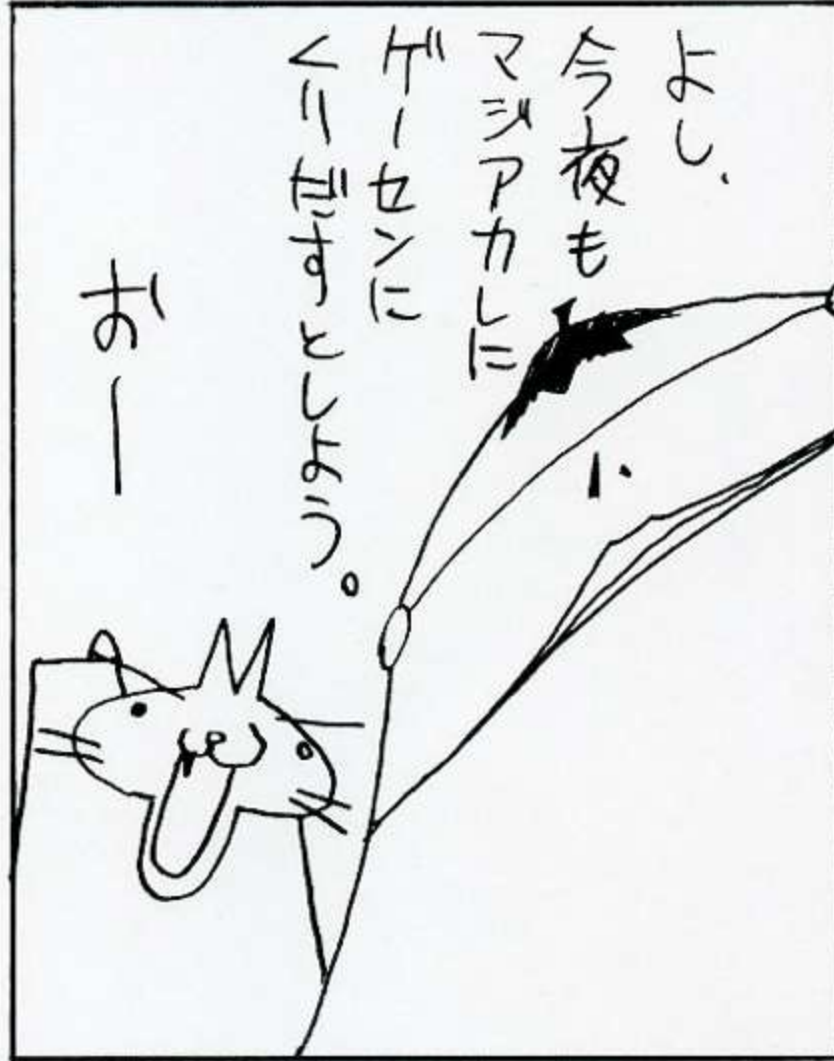 よし、
今夜も
マジアカしに
ゲーセンに
くりだすとしよう。
おー